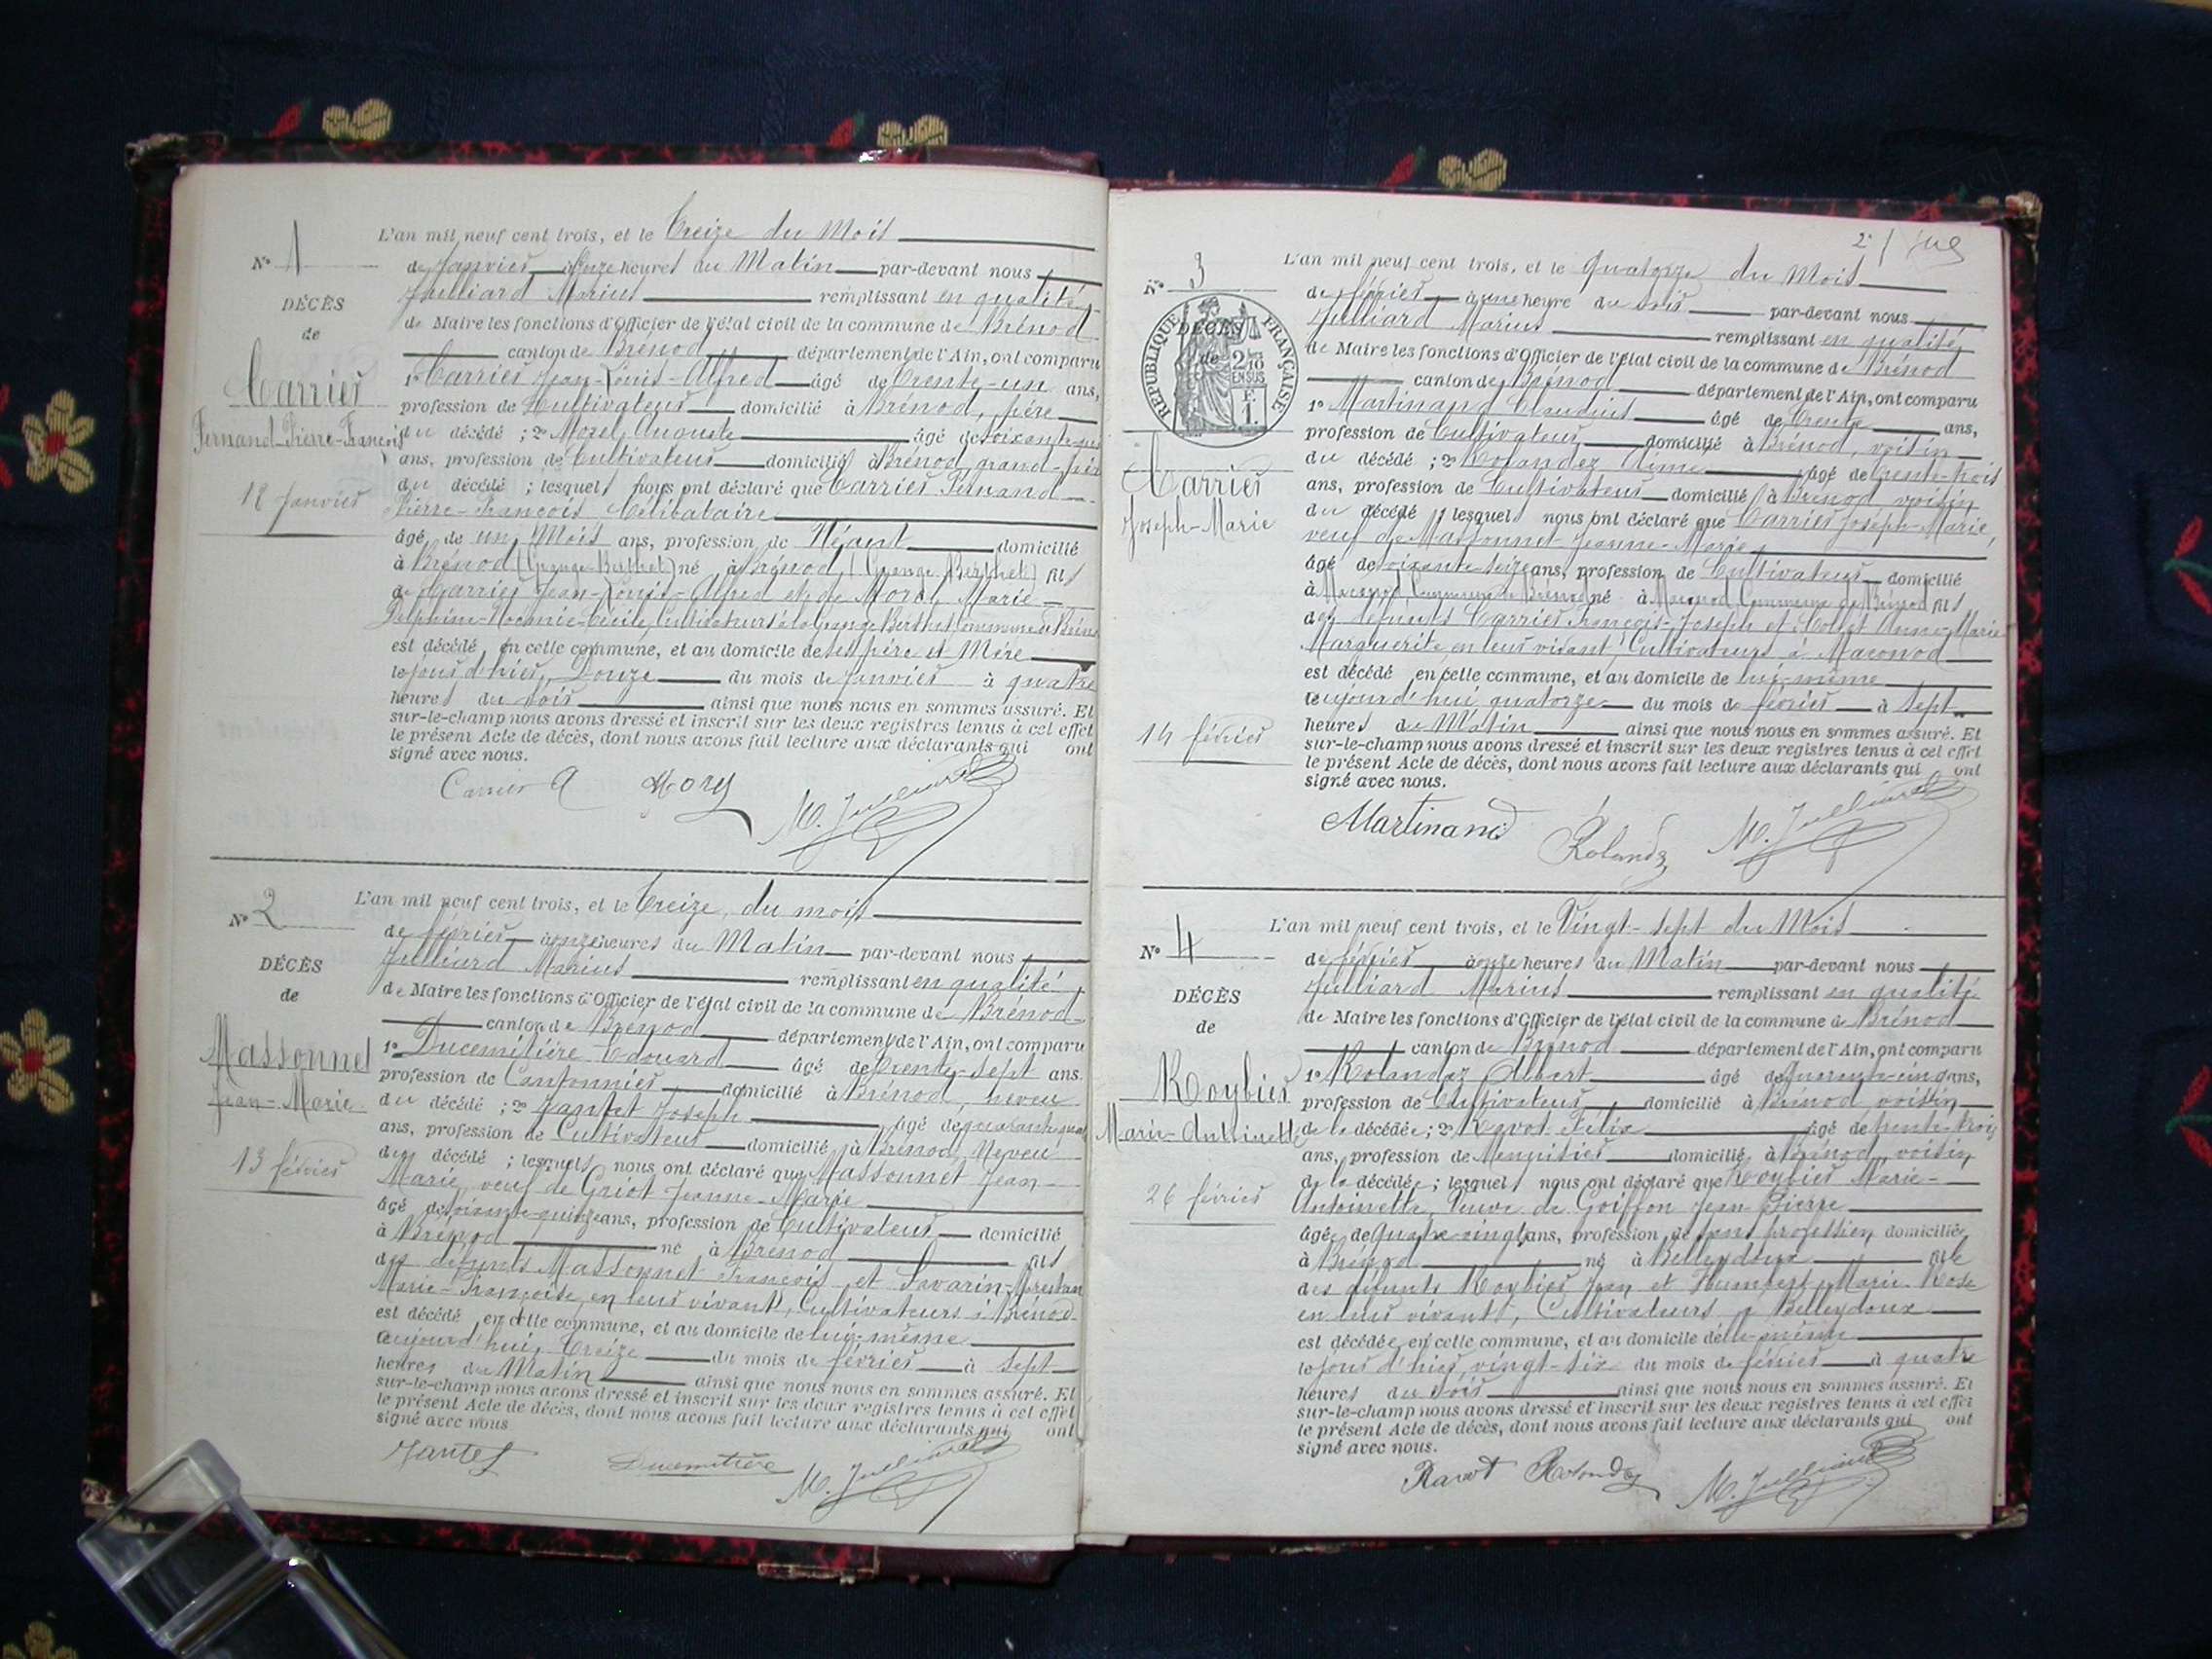 N° 1
DÉCÈS
de
Carrier
Fernand-Pierre-François
12 Janvier
L'an mil neuf cent trois, et le Treize du Mois
de Janvier à onze heures du Matin par-devant nous
Julliard Marius remplissant en qualité
de Maire les fonctions d'Officier de l'état civil de la commune de Brénod
canton de Brénod département de l'Ain, ont comparu
1° Carrier Jean-Louis-Alfred âgé de Trente-un ans,
profession de Cultivateur domicilié à Brénod, père
du décédé ; 2° Morel Auguste âgé de soixante-
ans, profession de Cultivateur domicilié à Brénod grand-père
du décédé ; lesquels nous ont déclaré que Carrier Fernand
Pierre-François Célibataire
âgé de un Mois ans, profession de Néant domicilié
à Brénod (Grange Berthet) né à Brénod (Grange Berthet) fils
de Carrier Jean-Louis-Alfred et de Morel Marie
Delphine-Noémie-Cécile, Cultivateurs à la Grange Berthet Commune de Brénod
est décédé en cette commune, et au domicile de ses père et Mère
le jour d'hier, Douze du mois de Janvier à quatre
heures du soir ainsi que nous nous en sommes assuré. Et
sur-le-champ nous avons dressé et inscrit sur les deux registres tenus à cet effet
le présent Acte de décès, dont nous avons fait lecture aux déclarants qui ont
signé avec nous.
Carrier A M. Julliard
N° 2
DÉCÈS
de
Massonnet
Jean-Marie
13 février
L'an mil neuf cent trois, et le Treize, du mois
de février à onze heures du Matin par-devant nous
Julliard Marius remplissant en qualité
de Maire les fonctions d'Officier de l'état civil de la commune de Brénod
canton de Brénod département de l'Ain, ont comparu
1° Ducemetière Edouard âgé de Trente-sept ans.
profession de Cantonnier domicilié à Brénod, neveu
du décédé ; 2° Jantet Joseph âgé de quarante-
ans, profession de Cultivateur domicilié à Brénod, Neveu
du décédé ; lesquels nous ont déclaré que Massonnet Jean-
Marie, veuf de Griot Jeanne-Marie
âgé de soixante-quinze ans, profession de Cultivateur domicilié
à Brénod né à Brénod fils
des défunts Massonnet François et Savarin-
Marie-Françoise, en leur vivant, Cultivateurs à Brénod
est décédé en cette commune, et au domicile de lui-même
aujourd'hui, Treize du mois de février à sept
heures du Matin ainsi que nous nous en sommes assuré. Et
sur-le-champ nous avons dressé et inscrit sur les deux registres tenus à cet effet
le présent Acte de décès, dont nous avons fait lecture aux déclarants qui ont
signé avec nous
Jantet Ducemetière M. Julliard
2e
N° 3
RÉPUBLIQUE FRANÇAISE
DÉCÈS
de
2/10
EN SUS
F.
1.
Carrier
Joseph-Marie
14 février
L'an mil neuf cent trois, et le Quatorze du Mois
de février à une heure du soir par-devant nous
Julliard Marius remplissant en qualité
de Maire les fonctions d'Officier de l'état civil de la commune de Brénod
canton de Brénod département de l'Ain, ont comparu
1° Martinand Claudius âgé de Trente ans,
profession de Cultivateur domicilié à Brénod, voisin
du décédé ; 2° Rolandez Aimé âgé de trente-trois
ans, profession de Cultivateur domicilié à Brénod voisin
du décédé ; lesquels nous ont déclaré que Carrier Joseph-Marie,
veuf de Massonnet Jeanne-Marie
âgé de soixante-seize ans, profession de Cultivateur domicilié
à Maconod Commune de Brénod né à Maconod Commune de Brénod fils
des défunts Carrier François-Joseph et Collet Anne-Marie
Marguerite en leur vivant Cultivateurs à Maconod
est décédé en cette commune, et au domicile de lui-même
aujourd'hui quatorze du mois de février à sept
heures du Matin ainsi que nous nous en sommes assuré. Et
sur-le-champ nous avons dressé et inscrit sur les deux registres tenus à cet effet
le présent Acte de décès, dont nous avons fait lecture aux déclarants qui ont
signé avec nous.
Martinand Rolandez M. Julliard
N° 4
DÉCÈS
de
Roybier
Marie-Antoinette
26 février
L'an mil neuf cent trois, et le Vingt-sept du Mois
de février à onze heures du Matin par-devant nous
Julliard Marius remplissant en qualité
de Maire les fonctions d'Officier de l'état civil de la commune de Brénod
canton de Brénod département de l'Ain, ont comparu
1° Rolandez Albert âgé de Quarante-cinq ans,
profession de Cultivateur domicilié à Brénod voisin
de la décédée ; 2° Ravot Félix âgé de trente-trois
ans, profession de Menuisier domicilié à Brénod, voisin
de la décédée ; lesquels nous ont déclaré que Roybier Marie-
Antoinette, Veuve de Goiffon Jean Pierre
âgée de Quatre-vingt ans, profession de sans profession domicilié
à Brénod né à Belleydoux fille
des défunts Roybier Jean et Humbert Marie-Rose
en leur vivant, Cultivateurs à Belleydoux
est décédée en cette commune, et au domicile d'elle-même
le jour d'hier, vingt-six du mois de février à quatre
heures du soir ainsi que nous nous en sommes assuré. Et
sur-le-champ nous avons dressé et inscrit sur les deux registres tenus à cet effet
le présent Acte de décès, dont nous avons fait lecture aux déclarants qui ont
signé avec nous.
Ravot Rolandez M. Julliard